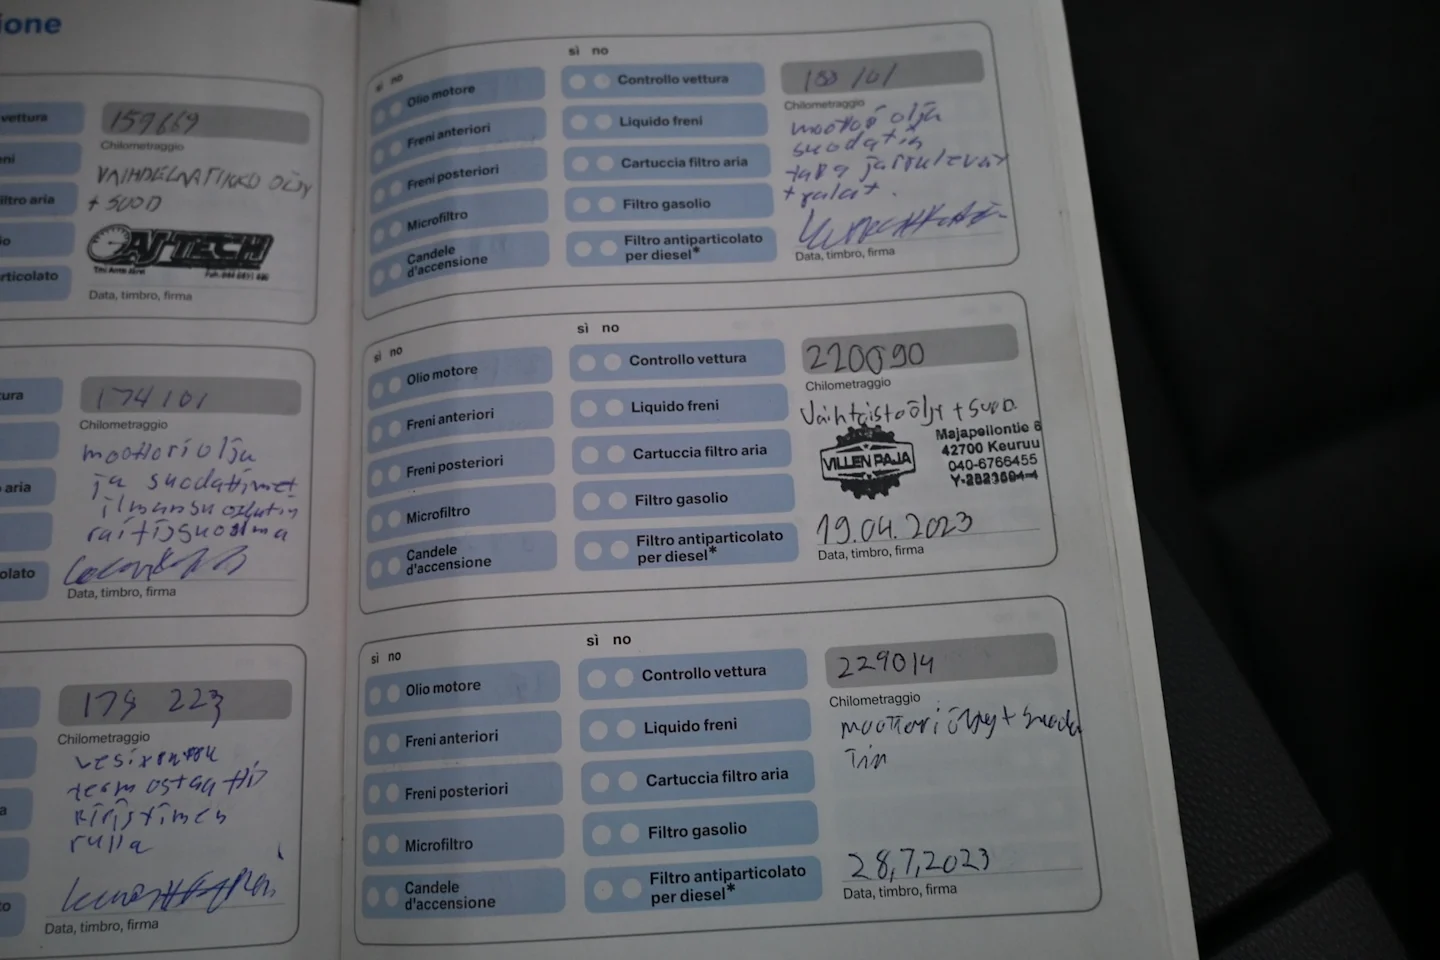 ione
vettura
159669
Chilometraggio
eni
VAIHDELAATIKKO ÖLJY
iltro aria
+ SUOD
io
AJ-TECH
rticolato
Data, timbro, firma
tura
174101
Chilometraggio
moottoriölja
ja suodattimet
o aria
ilmansuodatin
raitisuodma
olato
Data, timbro, firma
179 223
Chilometraggio
vesipumppu
termostaatti
a
kiristimen
rulla
to
Data, timbro, firma
sì no
sì no
Olio motore
Controllo vettura
Freni anteriori
Liquido freni
Freni posteriori
Cartuccia filtro aria
Microfiltro
Filtro gasolio
Candele
d'accensione
Filtro antiparticolato
per diesel*
Chilometraggio
moottori ölja
suodatin
taka jarrulevyt
+ palat.
Data, timbro, firma
sì no
sì no
Olio motore
Controllo vettura
Freni anteriori
Liquido freni
Freni posteriori
Cartuccia filtro aria
Microfiltro
Filtro gasolio
Candele
d'accensione
Filtro antiparticolato
per diesel*
220090
Chilometraggio
Vaihteistoöljy + SUOD.
VILLEN PAJA
Majapellontie 6
42700 Keuruu
040-6766455
19.04.2023
Data, timbro, firma
sì no
sì no
Olio motore
Controllo vettura
Freni anteriori
Liquido freni
Freni posteriori
Cartuccia filtro aria
Microfiltro
Filtro gasolio
Candele
d'accensione
Filtro antiparticolato
per diesel*
229014
Chilometraggio
moottori öljy + suoda
Tin
28,7,2023
Data, timbro, firma